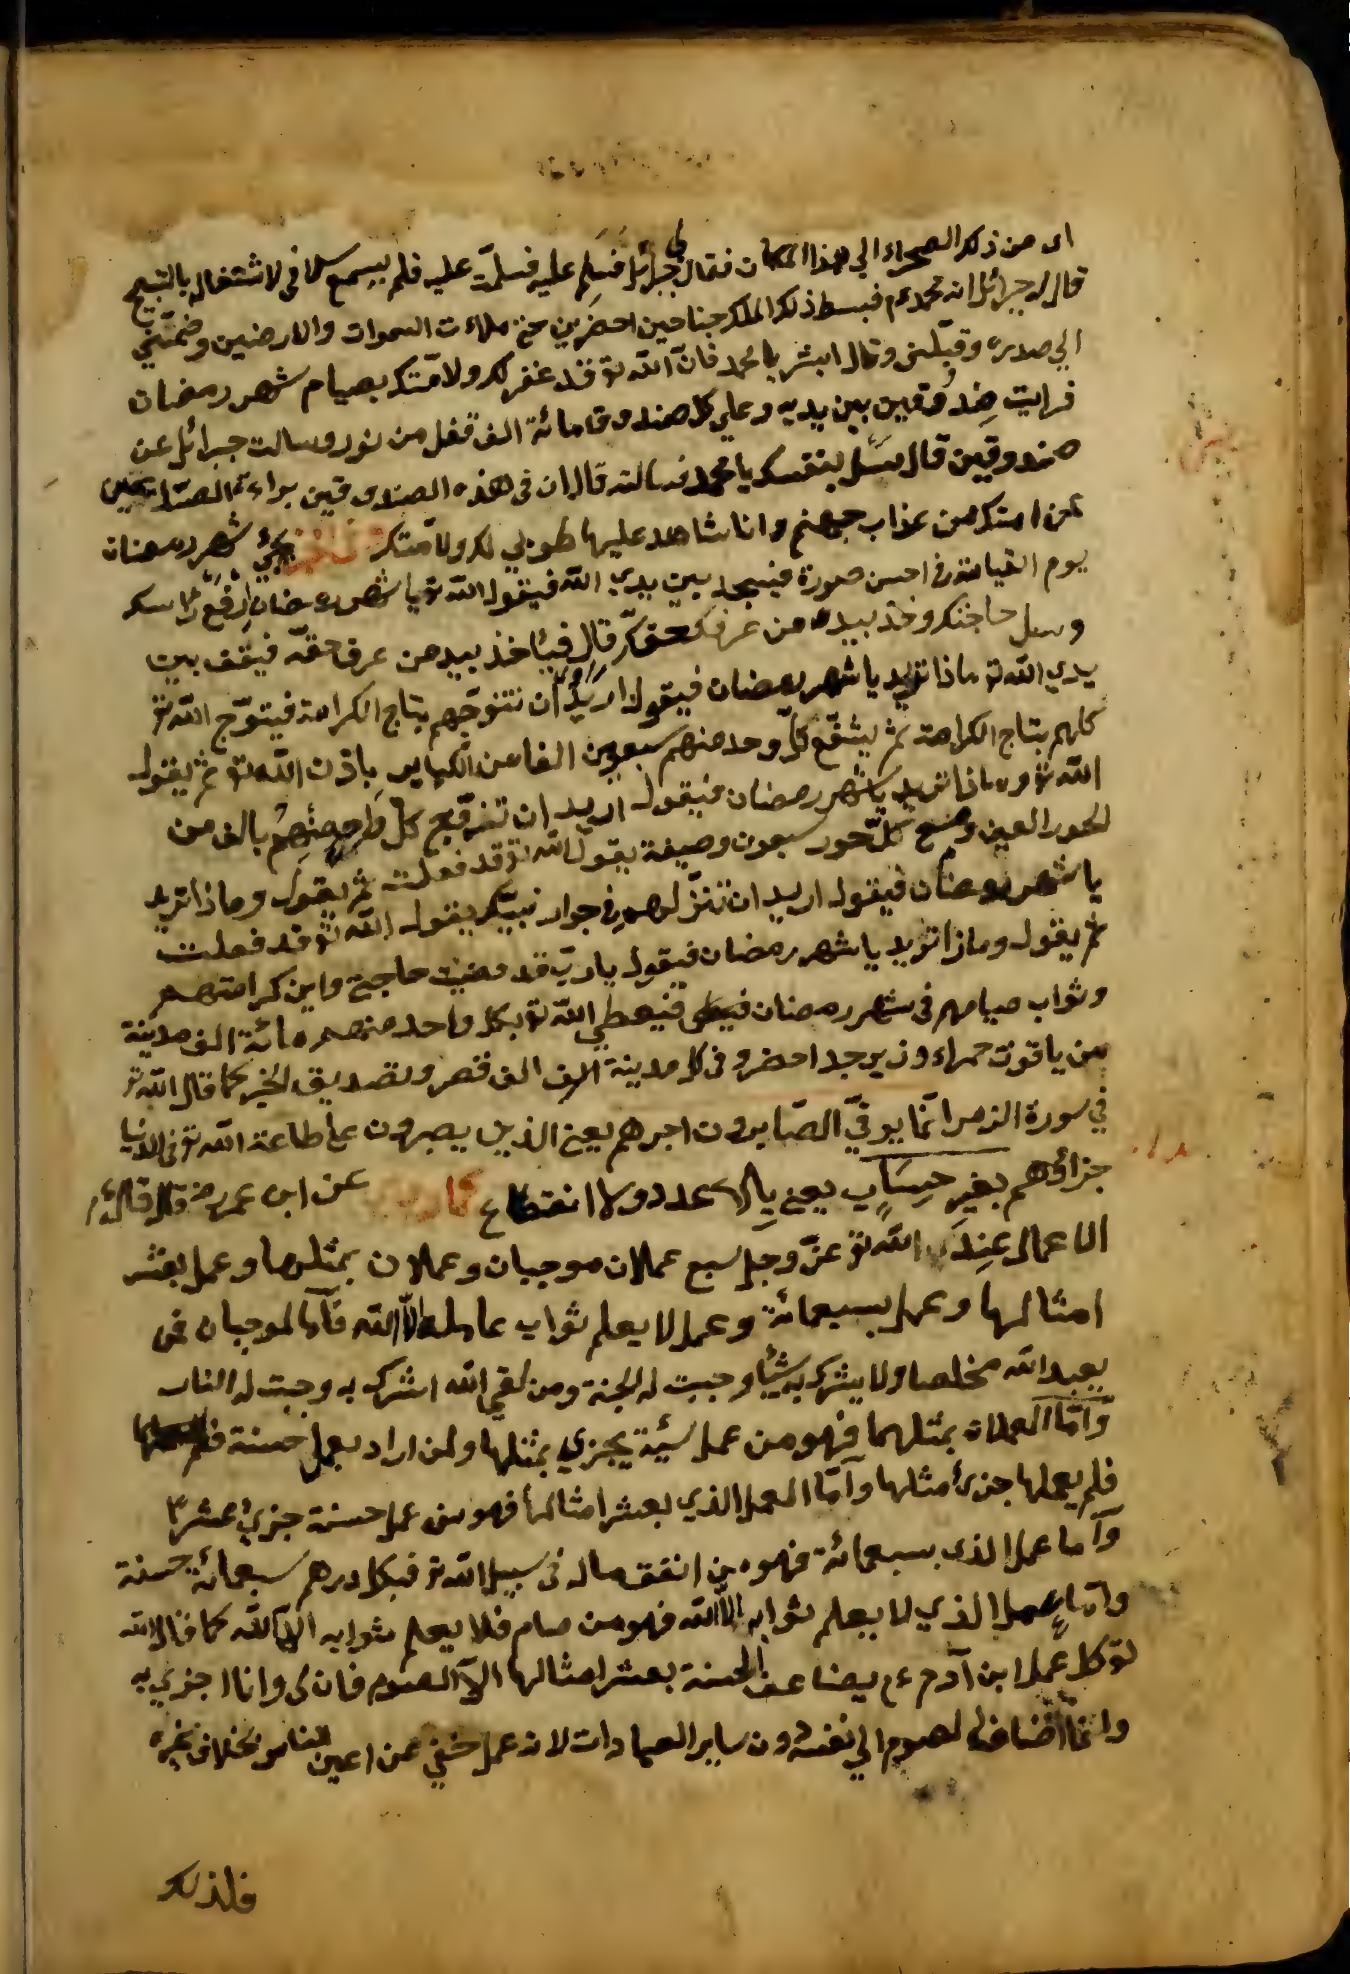 اى من ذلك الصحراء الى هذا المكان فقال لى جبرائل فسلم عليه فسلّمت عليه فلم يسمع سلامى لاشتغاله بالتسبيح
قال له جبرائل انه محمد عم فبسط ذلك الملك جناحين اخضرين حتى ملاءت السموات والارضين وضمّنى
الى صدره وقبّلنى وقال ابشر يا محمد فانّ الله تو قد غفر لك ولامّتك بصيام شهر رمضان
فرايت صندوقين بين يديه وعلى كل صندوق مائة الف قفل من نور وسالت جبرائل عن
صندوقين قال سَل بنفسك يا محمد فسالته قال ان فى هذه الصندوقين براءة الصّائمين
من امتك من عذاب جهنم وانا شاهد عليها طوبى لك ولامّتك يجئ شهر رمضان
يوم القيامة فى احسن صورة فيسجد بين يدى الله فيقول الله تو يا شهر رمضان ارفع رأسك
وسل حاجتك وخذ بيده من عرف حقك قال فيأخذ بيد من عرف حقّه فيقف بين
يدى الله تو ماذا تريد يا شهر رمضان فيقول اريد ان تتوّجهم بتاج الكرامة فيتوّج الله تو
كلهم بتاج الكرامة ثم يشفّع كلّ وحد منهم سبعين الفا من الكباير باذن الله تو ثم يقول
الله تو وماذا تريد يا شهر رمضان فيقول اريد ان تزوّج كل واحد منهم بالف من
الحور العين ومع كلّ حور سبعون وصيفة يقول الله تو قد فعلت ثم يقول وماذا تريد
يا شهر رمضان فيقول اريد ان تنزّلهم فى جوار نبيّك يقول الله تو قد فعلت
ثم يقول وماذا تريد يا شهر رمضان فيقول يا ربّ قد قضيت حاجتى واين كرامتهم
وثواب صيامهم فى شهر رمضان فيعطى الله تو بكل واحد منهم مائة الف مدينة
من ياقوت حمراء وزبرجد اخضر وفى كل مدينة الف الف قصر وتصديق الخبر كما قال الله تو
فى سورة الزمر انّما يوفّى الصّابرون اجرهم يعنى الذين يصبرون على طاعة الله تو فى الدنيا
جزاؤهم بغير حِسَابٍ يعنى بلا عدد ولا انقطاع عن ابن عمر رضه قال قال عم
الاعمال عِندَ الله تو عزّ وجل سبع عملان موجبان وعملان بمثلها وعمل بعشر
امثالها وعمل بسبعمائة وعمل لا يعلم ثواب عامله الّا الله فامّا الموجبان فمن
يعبد الله مخلصا ولا يشرك به شيأ وجبت له الجنة ومن لقى الله اشرك به وجبت له النار
وامّا العملان بمثلهما فهو من عمل سيئة يجزى بمثلها ولمن اراد يعمل حسنة
فلم يعملها جزئ مثلها وامّا العمل الذى بعشر امثالها فهو من عمل حسنة جزئ عشرا
وامّا عمل الذى بسبعمائة فهو من انفق ماله فى سبيل الله تو فبكل درهم سبعمائة حسنة
وامّا عمل الذى لا يعلم ثوابه الّا الله فهو من صام فلا يعلم ثوابه الّا الله كما قال الله
تو كل عمل ابن آدم عم يضاعف الحسنة بعشر امثالها الّا الصوم فان لى وانا اجزى به
وانمّا اضاف الصوم الى نفسه دون ساير العبادات لانه عمل خفى عن اعين الناس بخلاف غيره
فلذلك